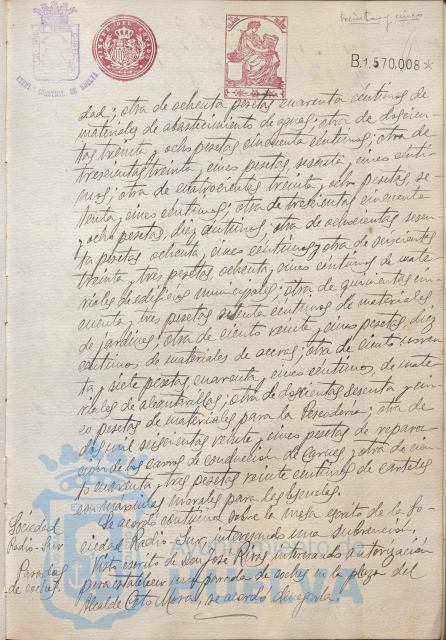 treinta y cinco
B.1.570.008*
dad; otra de ochenta pesetas cuarenta céntimos de
materiales de abastecimiento de aguas; otra de doscien-
tas treinta y ocho pesetas cincuenta céntimos; otra de
trescientas treinta y cinco pesetas, sesenta y cinco cénti-
mos; otra de cuatrocientas treinta y ocho pesetas se-
tenta y cinco céntimos; otra de trescientas cincuenta
y ocho pesetas, diez céntimos; otra de ochocientas sesen-
ta pesetas ochenta y cinco céntimos y otra de seiscientas
treinta y tres pesetas ochenta y cinco céntimos de mate-
riales de edificios municipales; otra de quinientas cin-
cuenta y tres pesetas céntimos de materiales
de jardines; otra de ciento veinte y cinco pesetas, diez
céntimos de materiales de aceras; otra de ciento noven-
ta y siete pesetas, cuarenta y cinco céntimos, de mate-
riales de alcantarillas; otra de doscientas sesenta y cin-
co pesetas de materiales para la Pescadería; otra de
dos mil seiscientas veinte y cinco pesetas de repara-
ción de los carros de conducción de Carnes; otra de cien-
to cuarenta y tres pesetas veinte céntimos de carteles
con máximas morales para las escuelas.
Sociedad
Radio-Sur
Se acordó continúe sobre la mesa escrito de la So-
ciedad Radio-Sur, interesando una subvención.
Paradas
de coches.
Visto escrito de Don José Ríos interesando autorización
para establecer una parada de coches en la plaza del
Alcalde Coto Mora, se acordó